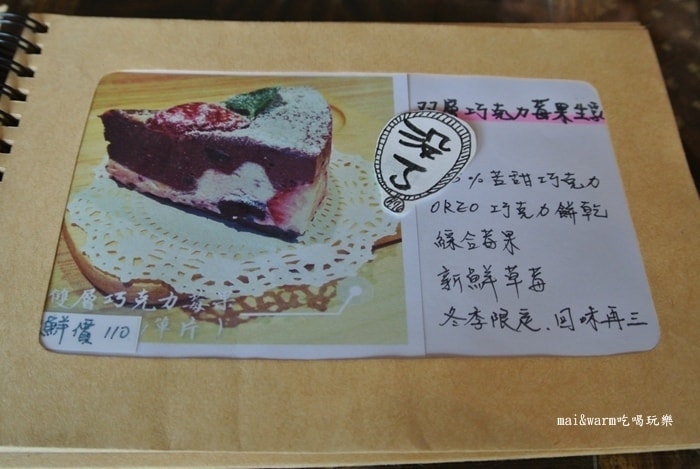 双層巧克力莓果生乳
殺了
%苦甜巧克力
OREO 巧克力餅乾
綜合莓果
新鮮草莓
冬季限定、回味再三
雙層巧克力莓果
(單片)
鮮價 110
mai&warm吃喝玩樂